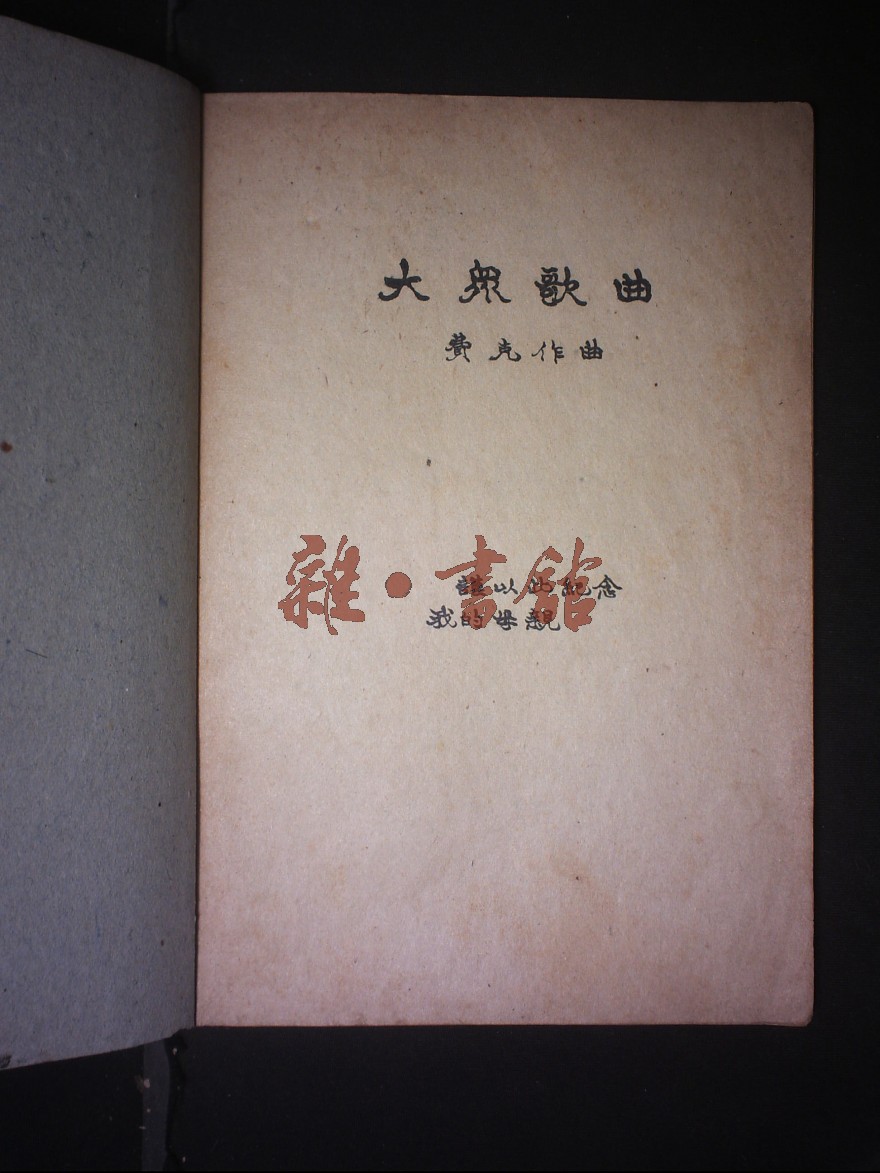 大眾歌曲
費克作曲
雜·書館
謹以此紀念
我的母親